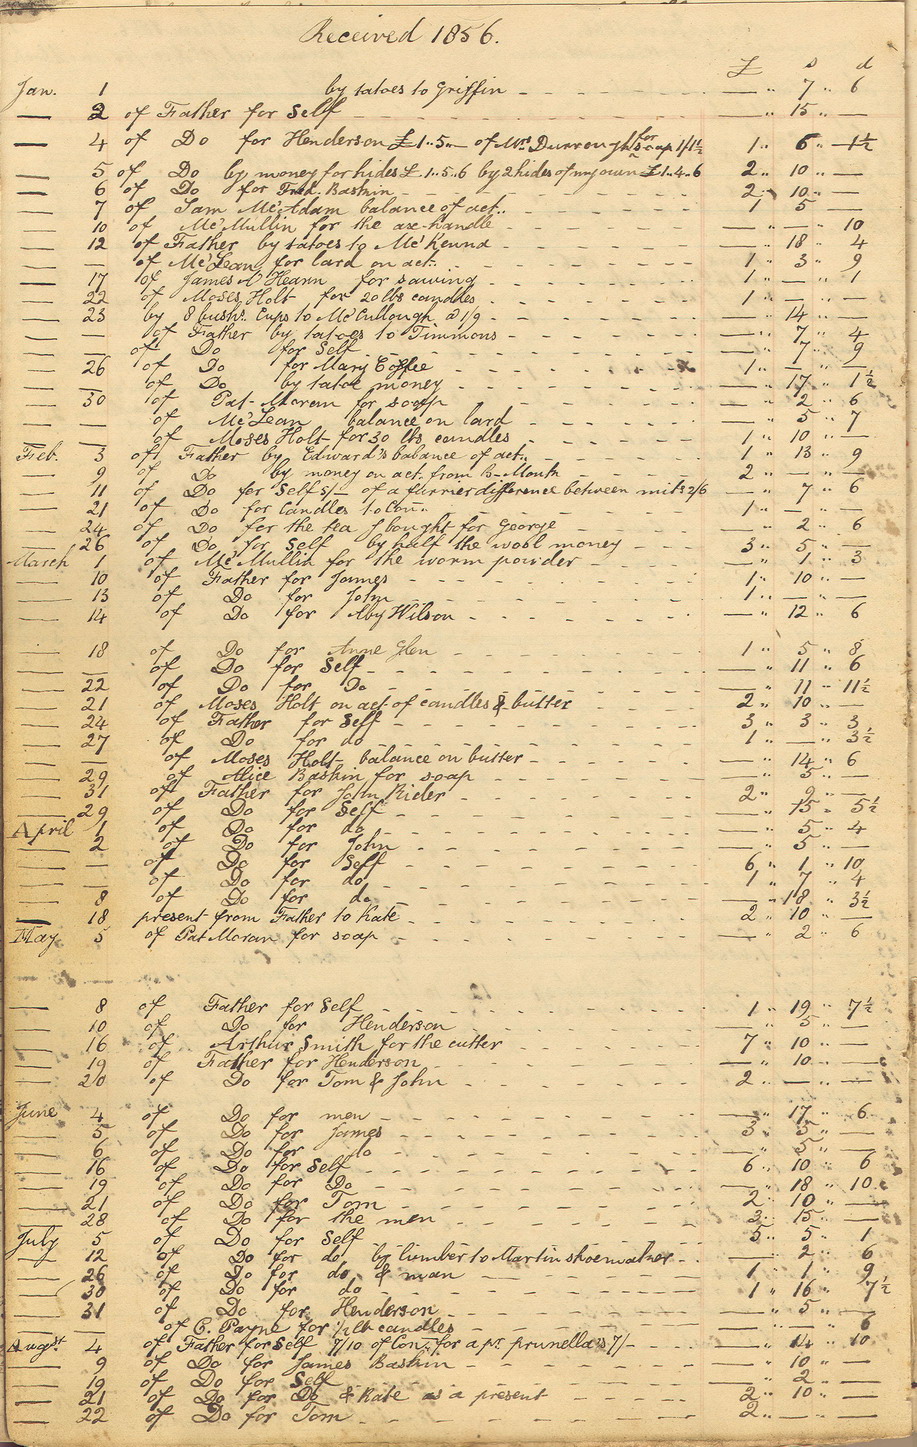 Received 1856.
£ s d
Jan. 1 by tatoes to Griffin - - - - - - — " 7 " 6
— 2 of Father for Self - - - - - - — " 15 " —
— 4 of Do for Henderson £1..5..— of Mrs Durrough for soap 1/1½ 1 " 6 " 1½
— 5 of Do by money for hides £1..5..6 by 2 hides of my own £1..4..6 2 " 10 " —
— 6 of Do for Fred. Baskin - - - - - - 2 " 10 " —
— 7 of Sam McAdam balance of act.. - - - - - - 1 " 5 " —
— 10 of McMullin for the axe-handle - - - - - - — " — " 10
— 12 of Father by tatoes to McKenna - - - - - - — " 18 " 4
— — of McLean for lard on act. - - - - - - 1 " 3 " 9
— 17 of James A Hearn for sawing - - - - - - 1 " — " 1
— 22 of Moses Holt for 20 lbs candles - - - - - - 1 " — " —
— 23 by 8 bushs. Cups to McCullough @ 1/9 - - - - - - — " 14 " —
— — of Father by tatoes to Timmons - - - - - - — " 7 " 4
— — of Do for Self - - - - - - — " 7 " 9
— 26 of Do for Mary Coffee - - - - - - 1 " — " —
— — of Do by tatoe money - - - - - - — " 17 " 1½
— 30 of Pat. Moran for soap - - - - - - — " 2 " 6
— — of McLean balance on lard - - - - - - — " 5 " 7
— — of Moses Holt for 30 lbs candles - - - - - - 1 " 10 " —
Feb. 3 of Father by Edward's balance of act.. - - - - - - 1 " 13 " 9
— 9 of Do by money on act. from B-Mouth - - - - - - 2 " — " —
— 11 of Do for Self 5/— of a furrier difference between mits 2/6 — " 7 " 6
— 21 of Do for Candles to Con.. - - - - - - 1 " — " —
— 24 of Do for the tea I bought for George - - - - - - — " 2 " 6
— 26 of Do for Self by half the wool money - - - - - - 3 " 5 " —
March 1 of McMullin for the worm powder - - - - - - — " 1 " 3
— 10 of Father for James - - - - - - 1 " 10 " —
— 13 of Do for John - - - - - - 1 " — " —
— 14 of Do for Aby Wilson - - - - - - — " 12 " 6
— 18 of Do for Anne Glen - - - - - - 1 " 5 " 8
— — of Do for Self - - - - - - — " 11 " 6
— 22 of Do for Do - - - - - - — " 11 " 11½
— 21 of Moses Holt on act. of candles & butter - - - - - - 2 " 10 " —
— 24 of Father for Self - - - - - - 3 " 3 " 3
— 27 of Do for do - - - - - - 1 " — " 3½
— — of Moses Holt balance on butter - - - - - - — " 14 " 6
— 29 of Alice Baskin for soap - - - - - - — " 5 " —
— 31 of Father for John Rider - - - - - - 2 " 9 " —
— 29 of Do for Self - - - - - - — " 15 " 5½
April 1 of Do for do - - - - - - — " 5 " 4
— 2 of Do for John - - - - - - — " 5 " —
— — of Do for Self - - - - - - 6 " 1 " 10
— — of Do for do - - - - - - 1 " 7 " 4
— 8 of Do for do - - - - - - — " 18 " 3½
— 18 present from Father to Kate - - - - - - 2 " 10 " —
May 5 of Pat Moran for soap - - - - - - — " 2 " 6
— 8 of Father for Self - - - - - - 1 " 19 " 7½
— 10 of Do for Henderson - - - - - - " 5 " —
— 16 of Arthur Smith for the cutter - - - - - - 7 " 10 " —
— 19 of Father for Henderson - - - - - - — " 10 " —
— 20 of Do for Tom & John - - - - - - 2 " — " —
June 4 of Do for men - - - - - - — " 17 " 6
— 5 of Do for James - - - - - - 3 " 5 " —
— 6 of Do for do - - - - - - — " 5 " —
— 16 of Do for Self - - - - - - 6 " 10 " 6
— 19 of Do for Do - - - - - - — " 18 " 10
— 21 of Do for Tom - - - - - - 2 " 10 " —
— 28 of Do for the men - - - - - - 3 " 15 " —
July 5 of Do for Self - - - - - - 5 " 5 " 1
— 12 of Do for do by lumber to Martin shoemaker - - — " 2 " 6
— 26 of Do for do, & man - - - - - - 1 " 1 " 9
— 30 of Do for do, - - - - - - 1 " 16 " 7½
— 31 of Do for Henderson - - - - - - — " 5 " —
— — of C. Payne for ½ lb candles - - - - - - — " — " 6
Augst. 4 of Father for Self 7/10 of Con. for a pr. prunella's 7/— - — " 14 " 10
— 9 of Do for James Baskin - - - - - - — " 10 " —
— 19 of Do for Self - - - - - - — " 2 " —
— 21 of Do for Do & Kate as a present - - - - - - 2 " 10 " —
— 22 of Do for Tom - - - - - - 2 " — " —